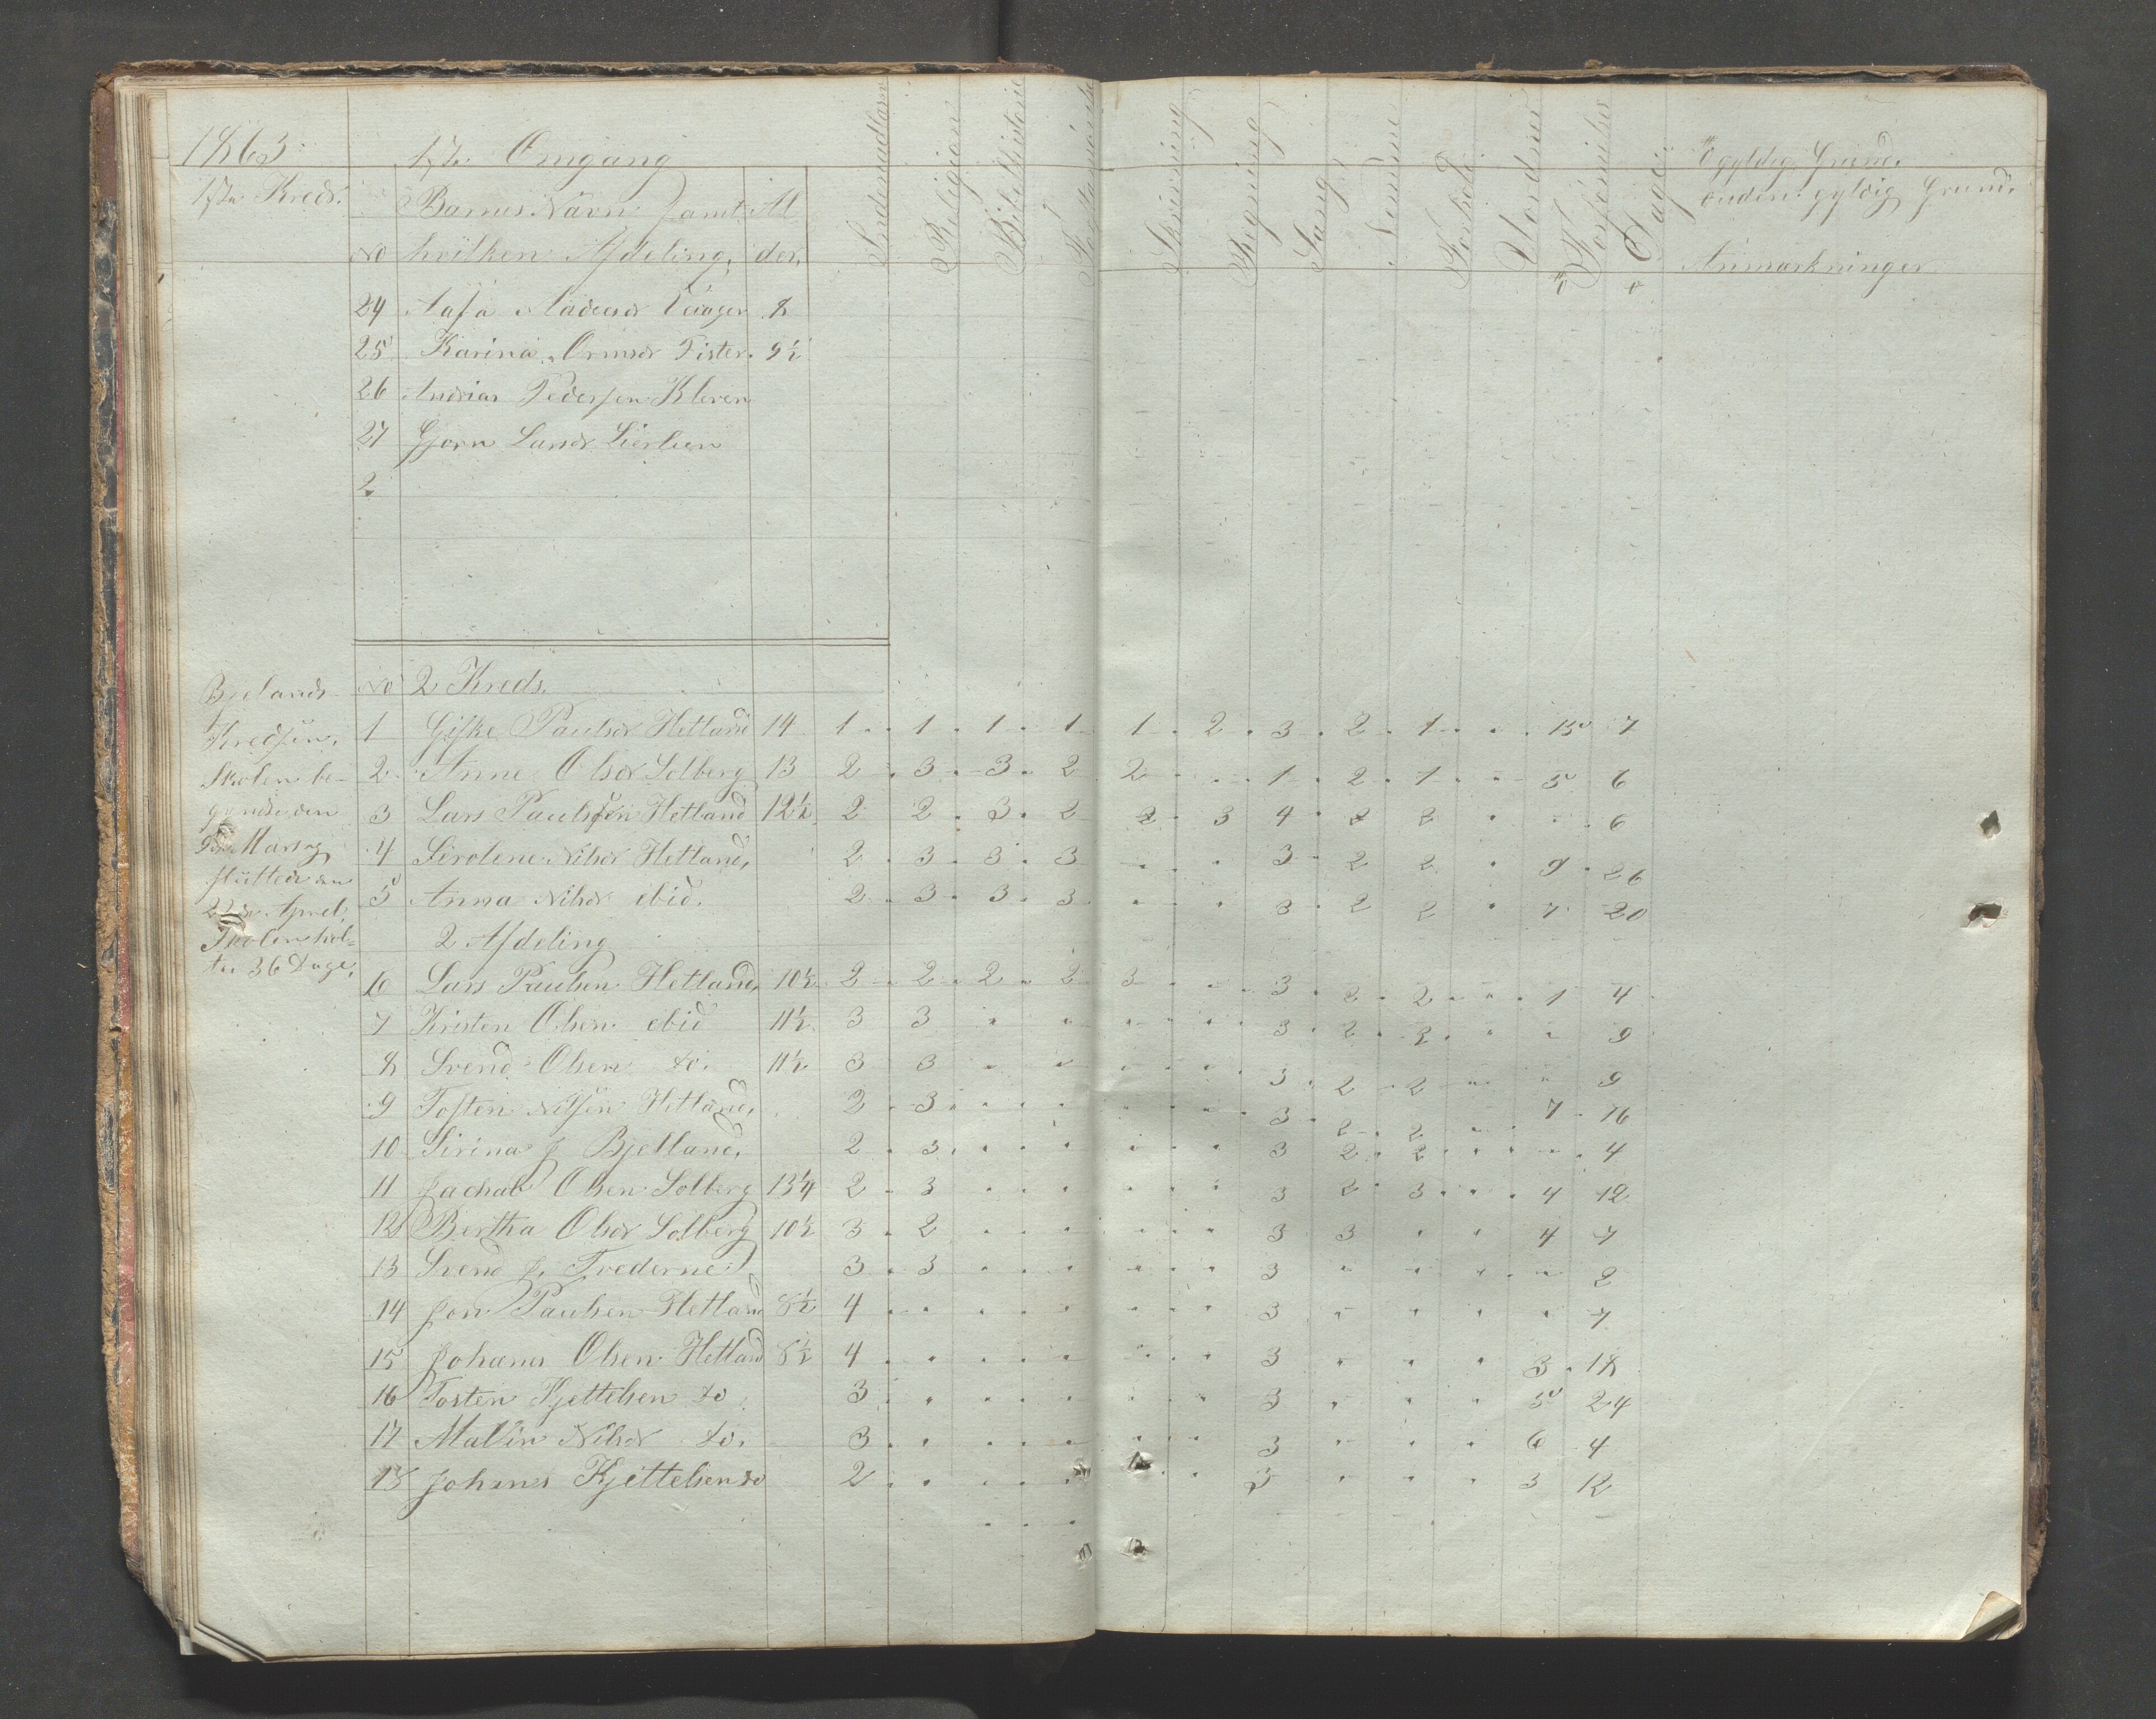 1863 1ste Omgang
1ste Kreds.
Barnes Navn samt Al
No hvilken Afdeling, der,
Religion
Bibelhistorie
Skrivning
Regning
Sang
Nemme
Forhold
Dage
gyldig Grund.
uden gyldig Grund.
Anmærkninger
24 8
25 Karina Ormsdr Fister. 9½
26 Andrias Pedersen Kleven
27 Larsdr
2
No 2 Kreds.
Bjelands
Kredsen,
Skolen be-
gyndte den
Mars og
sluttede den
22de April,
Skolen hol-
tes 36 Dage,
1 Giske Paulsdr Hetland 14 1 1 1 1 1 2 3 2 1 15 7
2 Anne Olsdr Solberg 13 2 3 3 2 2 1 2 1 5 6
3 Lars Paulsen Hetland 12½ 2 2 3 2 2 3 4 2 2 6
4 Sirolene Nilsdr Hetland, 2 3 3 3 3 2 2 9 26
5 Anna Nilsdr ebid. 2 3 3 3 3 2 2 7 20
2 Afdeling
6 Lars Paulsen Hetland, 10½ 2 2 2 2 3 3 2 2 1 4
7 Kristen Olsen ebid 11½ 3 3 3 2 2 9
8 Svend Olsen do. 11½ 3 3 3 2 2 9
9 Tosten Nilsen Hetland, 2 3 3 2 2 7 16
10 Sirina J Bjelland, 2 3 3 2 2 4
11 Jachob Olsen Solberg 13¼ 2 3 3 2 3 4 12
12 Bertha Olsdr Solberg 10½ 3 2 3 3 4 7
13 Svend J. 3 3 3 2
14 Jon Paulsen Hetland 8½ 4 3 7
15 Johanes Olsen Hetland 8½ 4 3 3 18
16 Tosten Kjettelsen do 3 3 5 24
17 Malin Nilsdr do. 3 3 6 4
18 Johanes Kjettelsen do 2 3 3 12